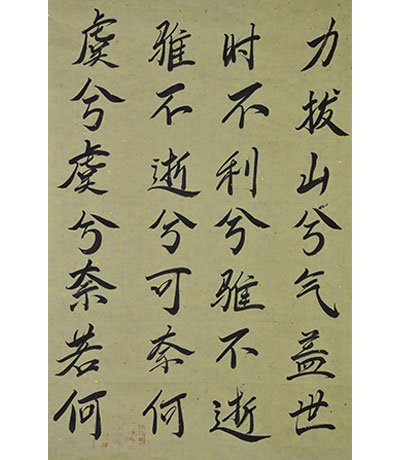 力拔山兮气盖世
时不利兮骓不逝
骓不逝兮可奈何
虞兮虞兮奈若何